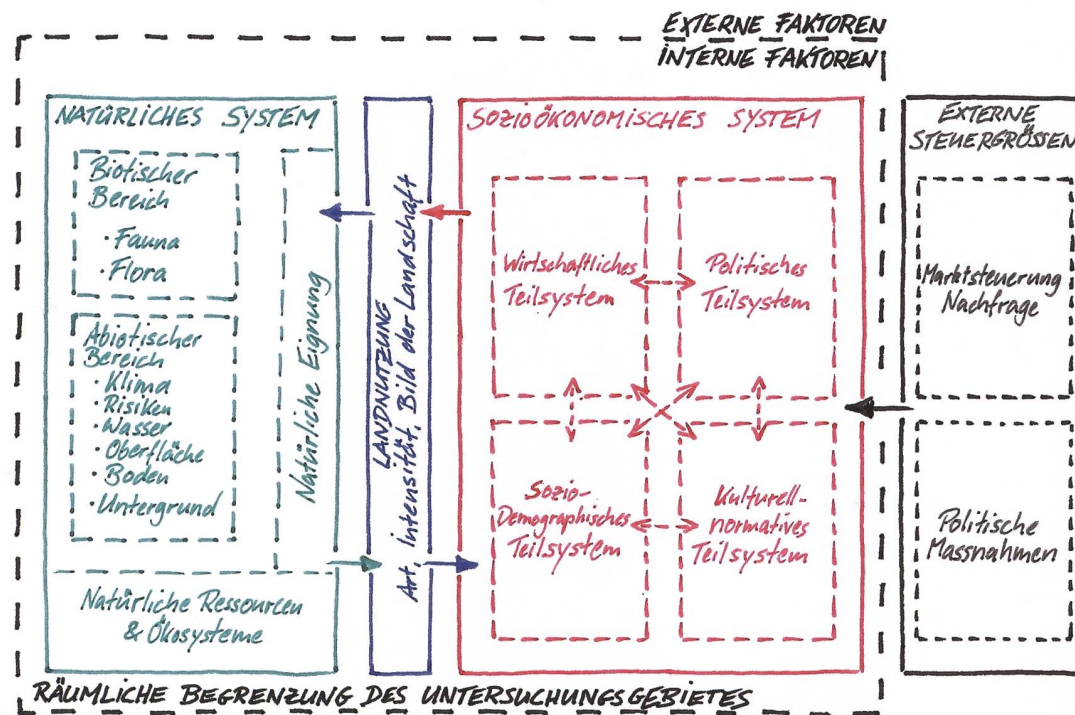 EXTERNE FAKTOREN
INTERNE FAKTOREN
NATÜRLICHES SYSTEM
Biotischer
Bereich
· Fauna
· Flora
Abiotischer
Bereich
· Klima
· Risiken
· Wasser
· Oberfläche
· Boden
· Untergrund
Natürliche Eignung
Natürliche Ressourcen
& Ökosysteme
LANDNUTZUNG
Art, Intensität, Bild der Landschaft
SOZIOÖKONOMISCHES SYSTEM
Wirtschaftliches
Teilsystem
Politisches
Teilsystem
Sozio-
Demographisches
Teilsystem
Kulturell-
normatives
Teilsystem
EXTERNE
STEUERGRÖSSEN
Marktsteuerung
Nachfrage
Politische
Massnahmen
RÄUMLICHE BEGRENZUNG DES UNTERSUCHUNGSGEBIETES